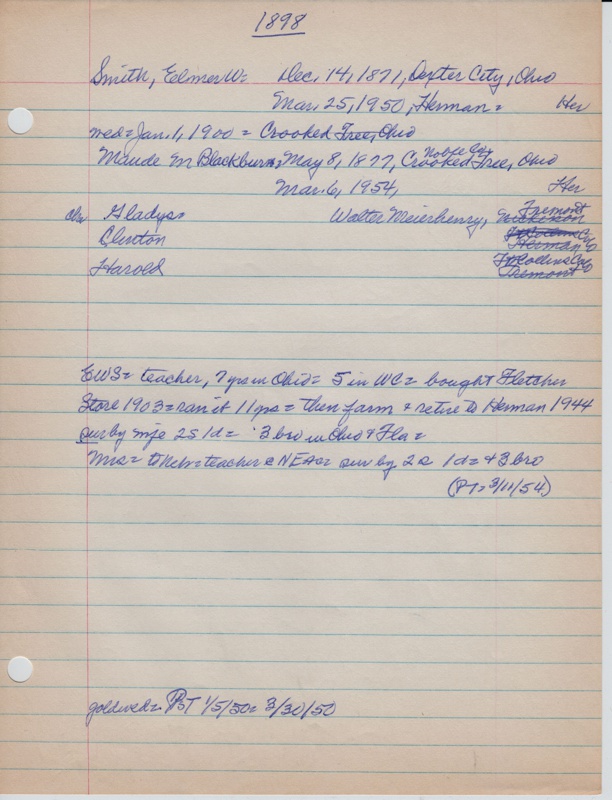 1898
Smith, Elmer W= Dec. 14, 1871, Dexter City, Ohio
Mar. 25, 1950, Herman= Her
wed=Jan. 1, 1900 = Crooked Tree, Ohio
Noble Co,
Maude M Blackburn, May 8, 1877, Crooked Tree, Ohio
Mar. 6, 1954, Her
Fremont
ch= Gladys= Walter Meierhenry,
Clinton Herman
Ft Collins Colo
Harold Fremont
EWS= teacher, 7 yrs in Ohio= 5 in WC= bought Fletcher
Store 1903=ran it 11 yrs= then farm & retire to Herman 1944
sur by wife 2s 1d= 3 bro in Ohio & Fla=
Mrs= to Neb=teacher @ NEA= sur by 2s 1d= & 3 bro
(PT=3/11/54)
goldwed= PT 1/5/50= 3/30/50